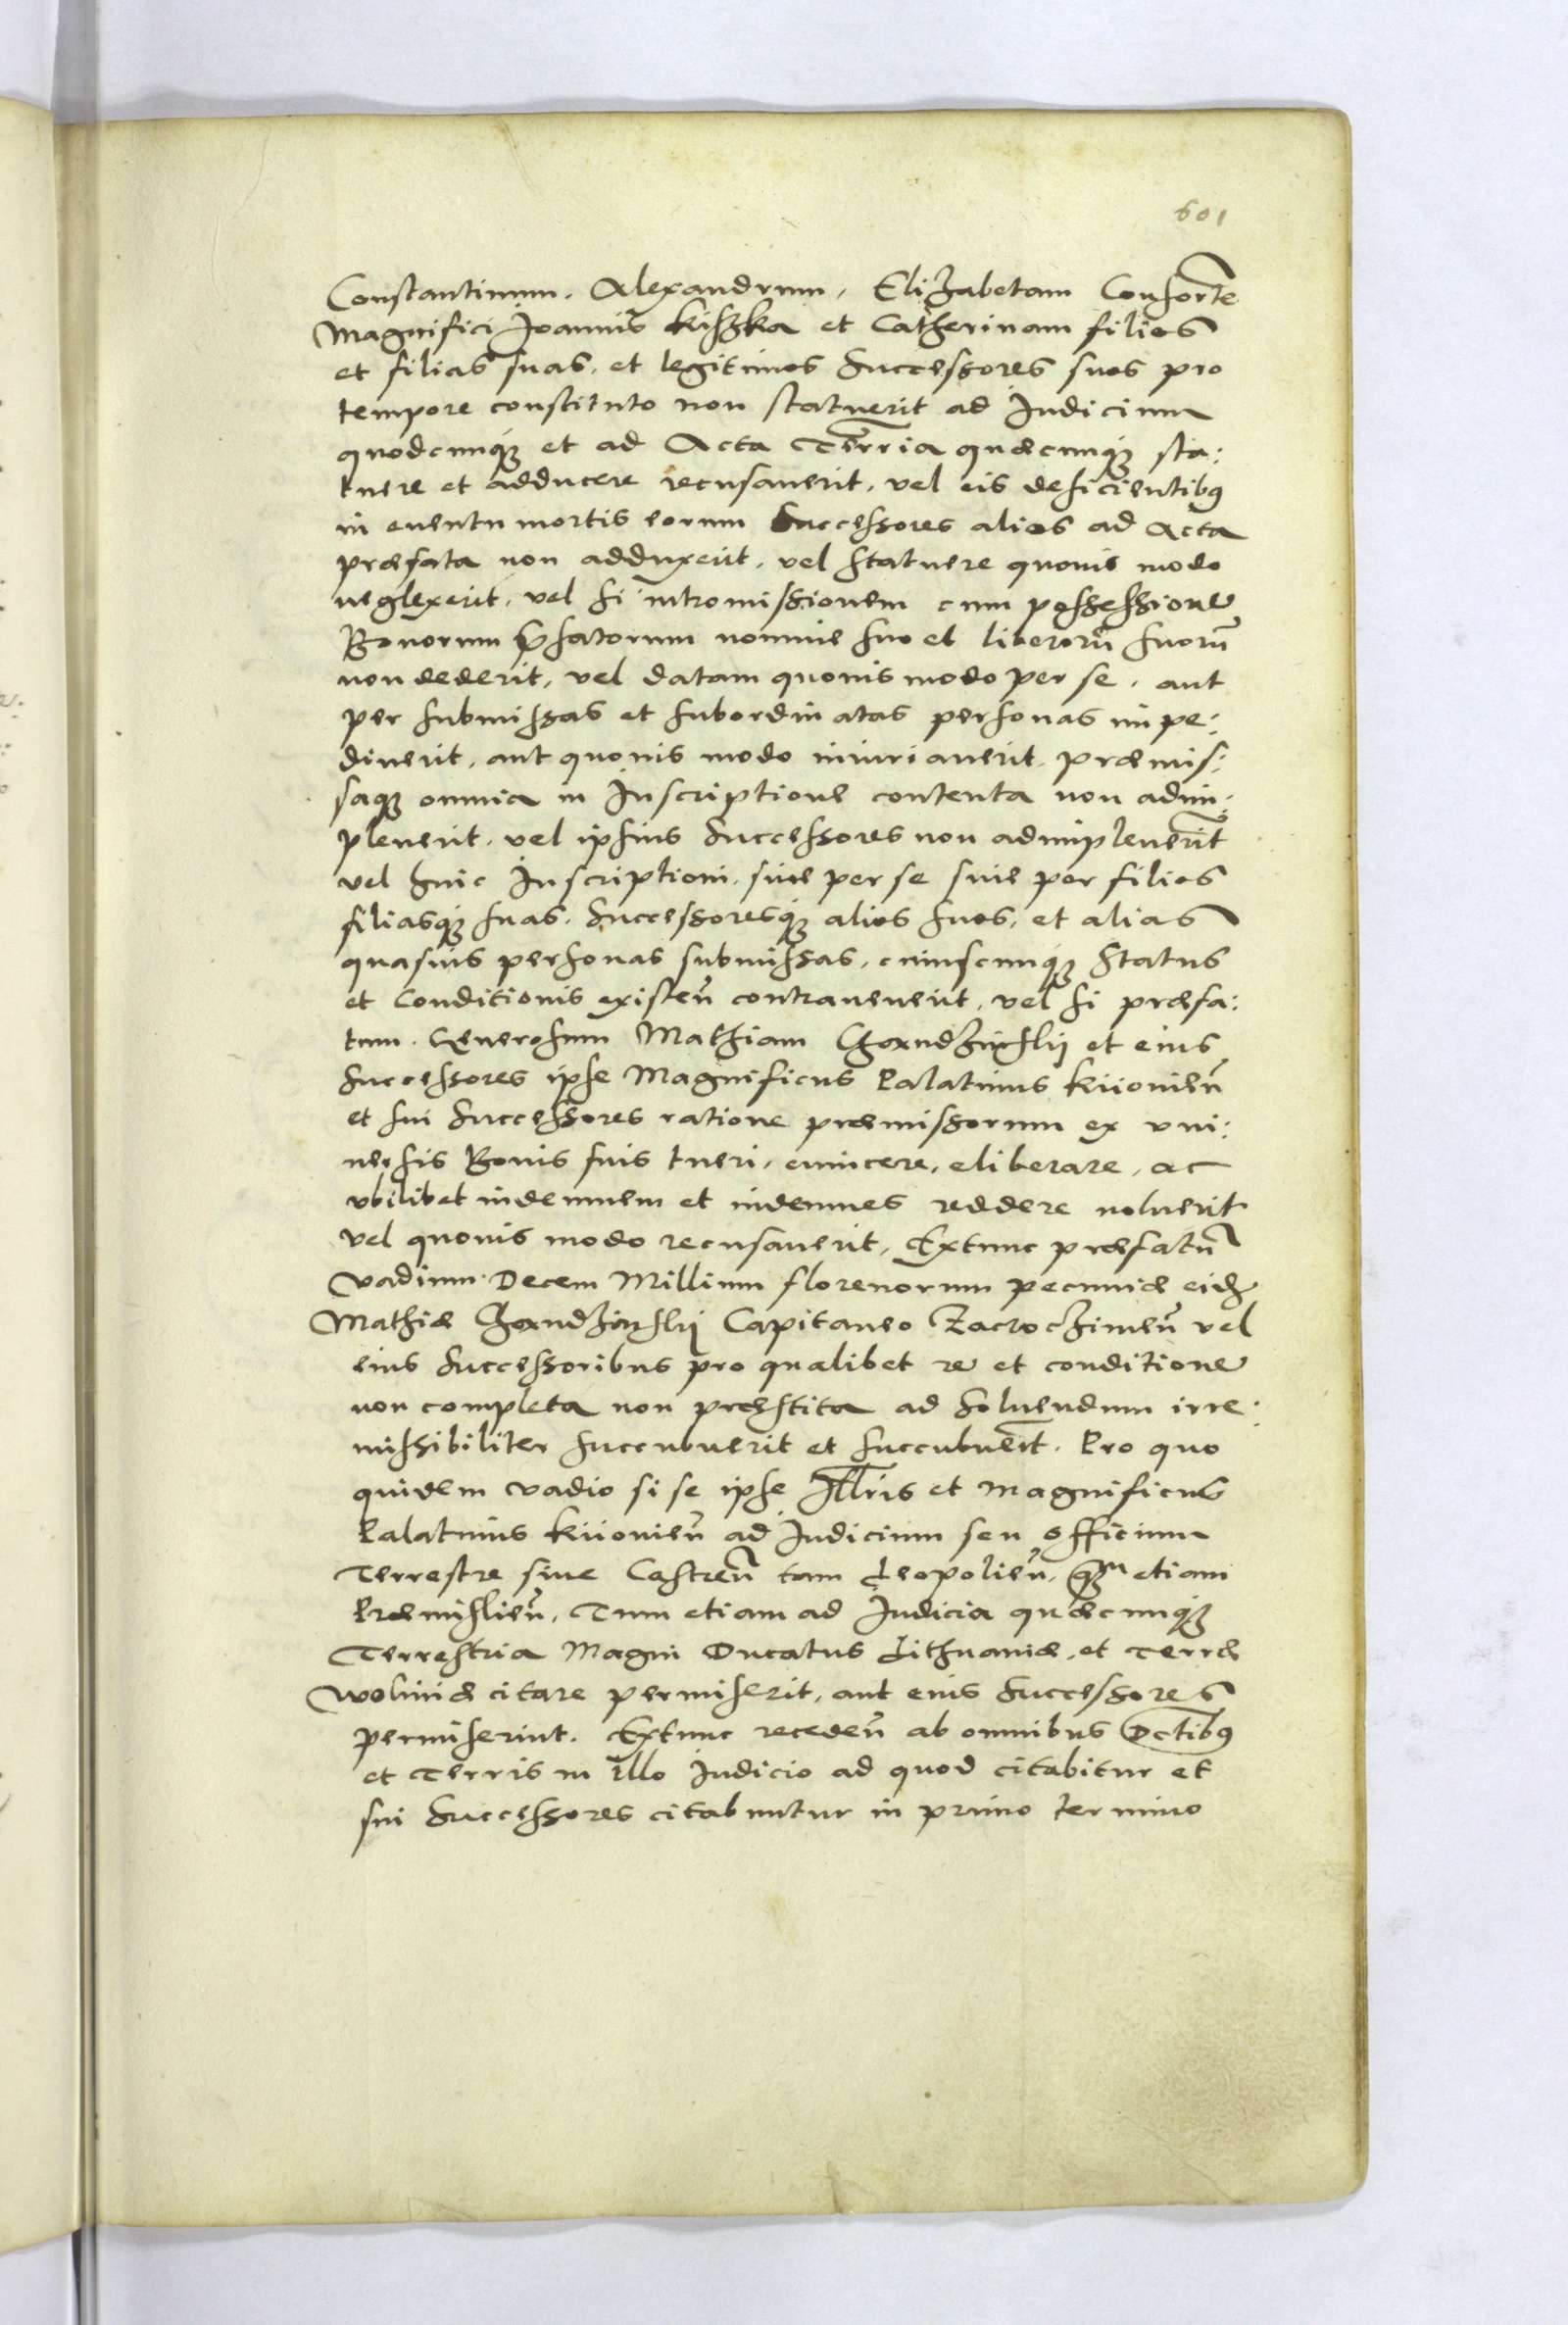 601
Constantinum. Alexandrum, Elizabetam Consorte
Magnifici Joannis Kiszka et Catherinam filios
et filias suas, et legitimos Successores suos pro
tempore constituto non statuerit ad Judicium
quodcunq; et ad Acta Terr̄ria quæcunq; sta:
tuere et adducere recusauerit, vel eis deficientibꝰ
in euentu mortis eorum Successores alios ad Acta
præfata non adduxerit, vel statuere quouis modo
neglexerit, vel si intromissionem cum possessione
Bonorum p̄fatorum nomine suo et liberorū suorū
non dederit, vel datam quouis modo per se, aut
per submissas et subordinatas personas impe:
diuerit, aut quouis modo iniuriauerit, præmis:
saq; omnia in Inscriptione contenta non adim:
pleuerit, vel ipsius Successores non adimpleuerīt
vel huic Inscriptioni, siue per se siue per filios
filiasq; suas, Successoresq; alios suos, et alias
quasuis personas submissas, cuiuscunq; Status
et Conditionis existeñ contrauenerit, vel si præfa:
tum Generosum Mathiam et eius
Successores ipse Magnificus Palatinus Kiiouieñ
et sui Successores ratione præmissorum ex vni:
uersis Bonis suis tueri, euincere, eliberare, ac
vbilibet indemnem et indemnes reddere noluerit
vel quouis modo recusauerit, Extunc præfatū
vadium Decem Millium florenorum pecuniæ eid;
Mathiæ Capitaneo Zacroczimeñ vel
eius Successoribus pro qualibet re et conditione
non completa non præstita ad soluendum irre:
missibiliter succubuerit et succubuerīt. Pro quo
quidem vadio si se ipse Ill̄ris et Magnificus
Palatinus Kiiouieñ ad Judicium seu officium
Terrestre siue Castreñ tam Leopolieñ, q̄m etiam
Præmislieñ, Tum etiam ad Judicia quæcunq;
Terrestria Magni Ducatus Lithuaniæ, et Terræ
Woliniæ citare permiserit, aut eius Successores
permiserint. Extunc recedeñ ab omnibus Dc̄tibꝰ
et Terris in illo Judicio ad quod citabitur et
sui Successores citabuntur in primo termino